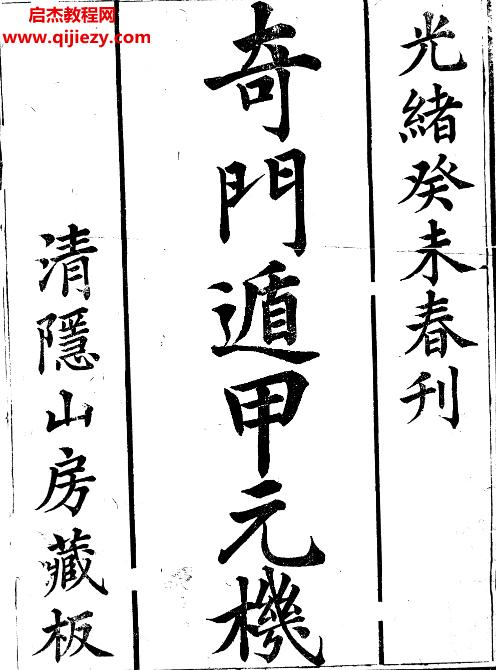 启杰教程网
www.qijiezy.com
光緒癸未春刊
奇門遁甲元機
清隱山房藏板